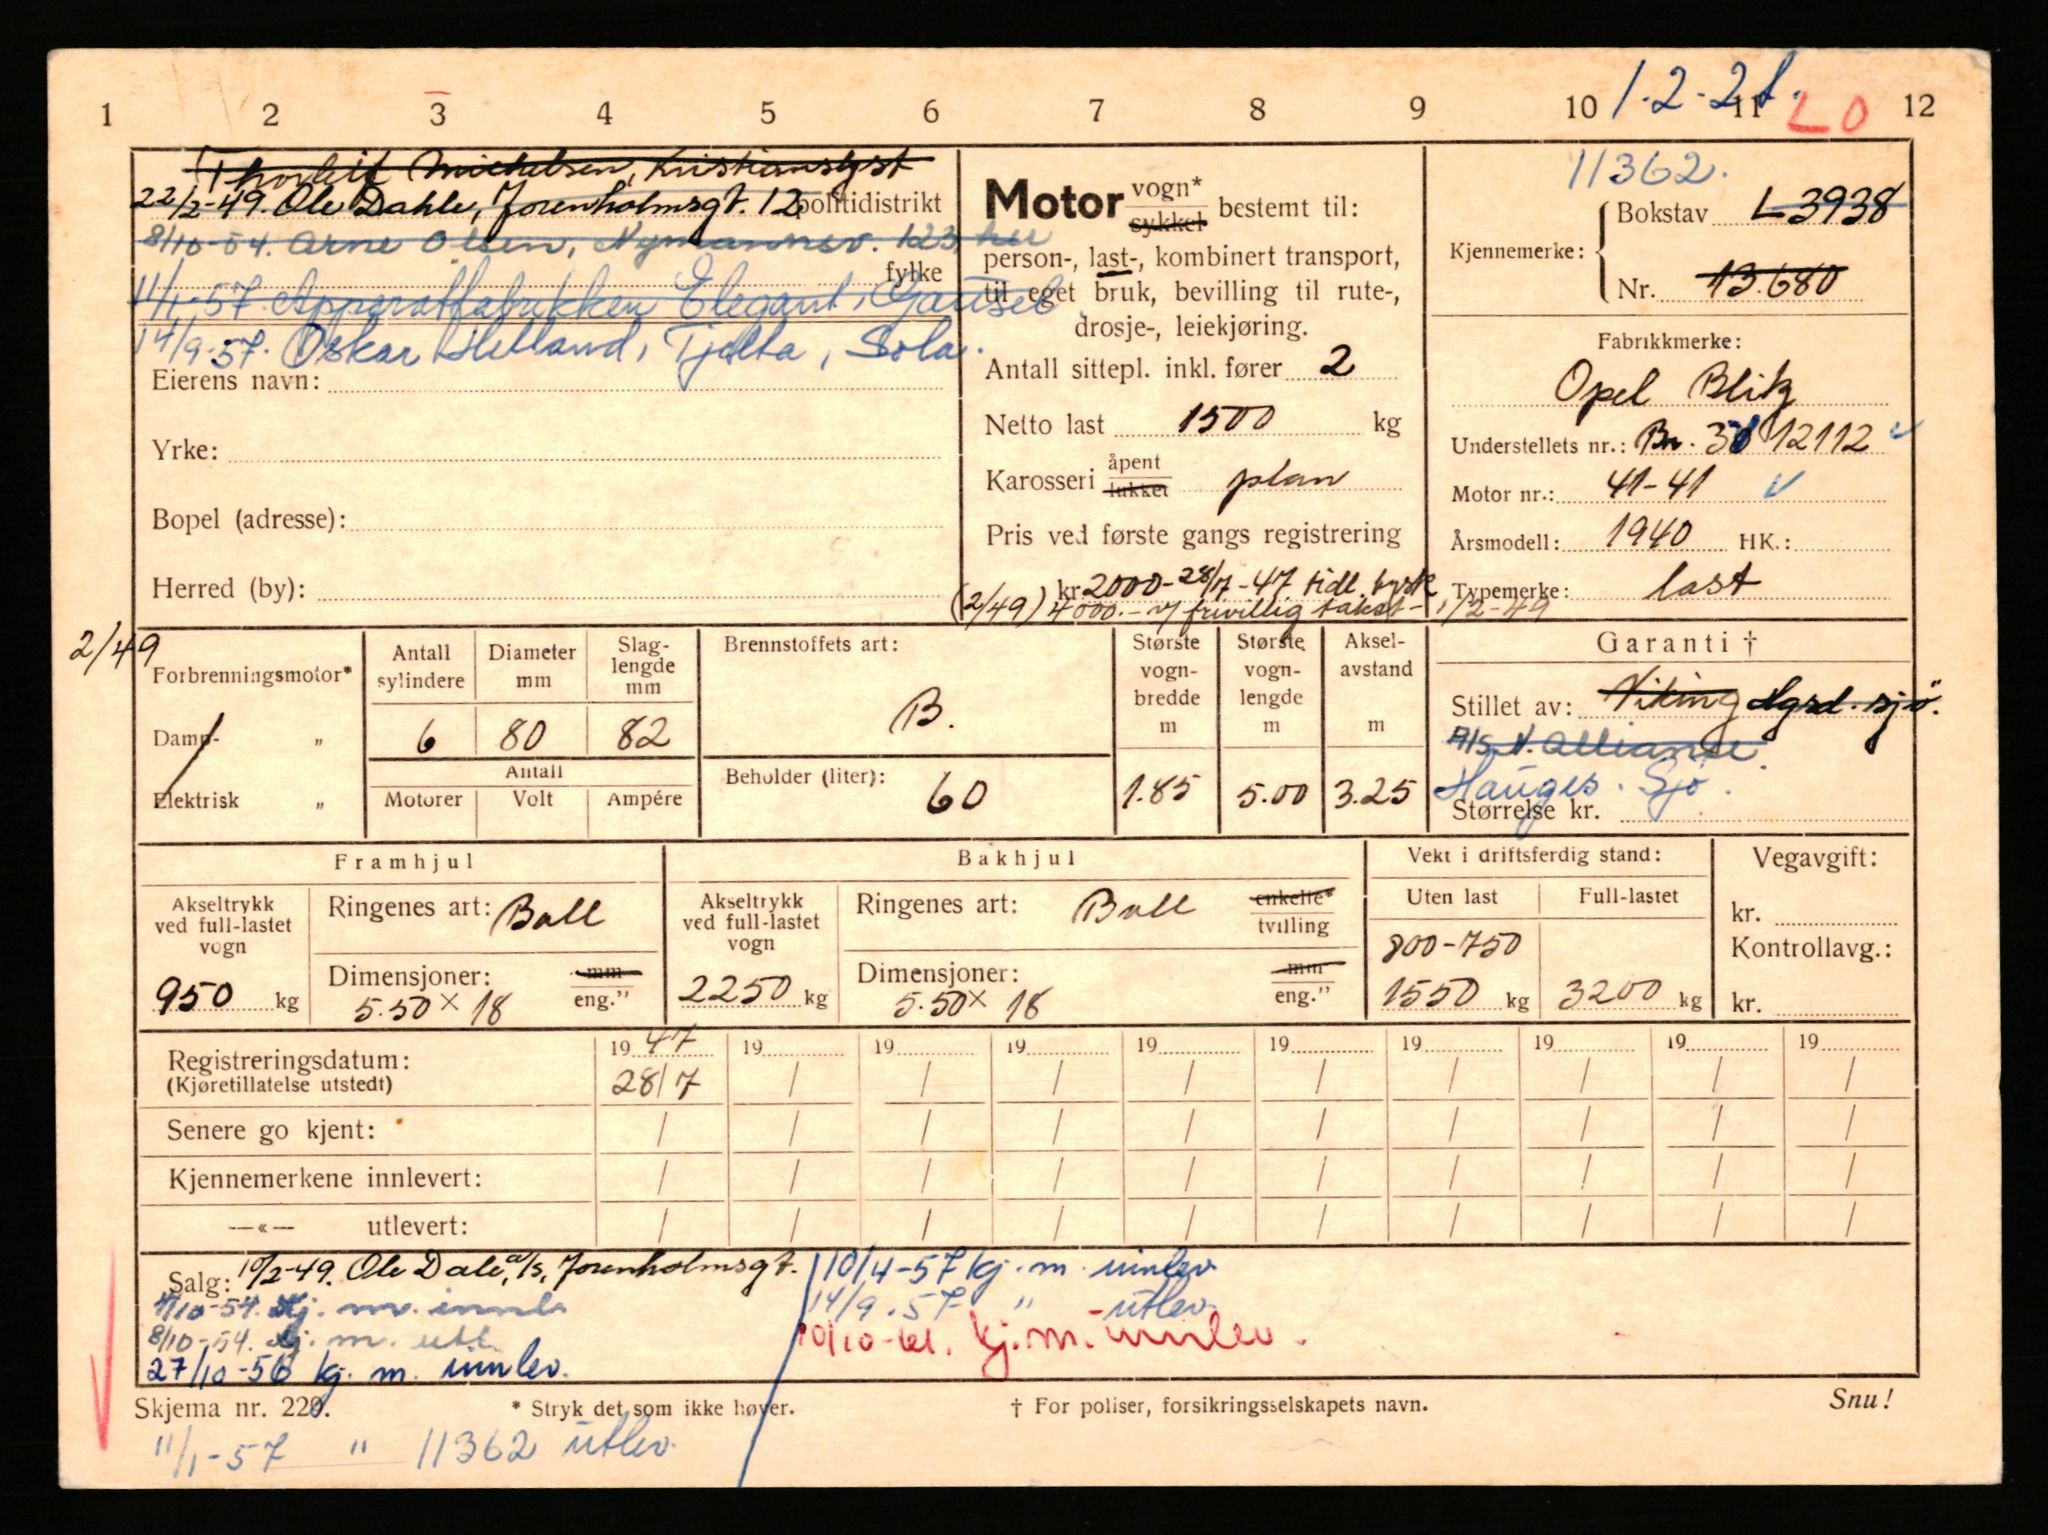 1 2 3 4 5 6 7 8 9 10 11 12
1.2-2 f. LO
Thorleif Michelsen, Kristianslyst
22/2-49. Ole Dahle, Jorenholmsgt. 12 politidistrikt
8/10-54. Arne Olsen, Nymannsv. 123, her
fylke
11/1-57 Apparatfabrikken Elegant, Gausel.
14/9-57. Oskar Helland, Tjelta, Sola.
Eierens navn:
Yrke:
Bopel (adresse):
Herred (by):
Motor vogn* sykkel bestemt til:
person-, last-, kombinert transport,
til eget bruk, bevilling til rute-,
drosje-, leiekjøring.
Antall sittepl. inkl. fører 2
Netto last 1500 kg
Karosseri åpent lukket plan
Pris ved første gangs registrering
kr 2000- 28/7-47 tidl. tysk
(2/49) 4000.- v/ frivillig takst - 1/2-49
11362.
Kjennemerke: Bokstav L 3938
Nr. 13.680
Fabrikkmerke:
Opel Blitz
Understellets nr.: Bn. 30 12112
Motor nr.: 41-41
Årsmodell: 1940 HK.:
Typemerke: last
2/49
Forbrenningsmotor*
Damp- „
Elektrisk „
Antall sylindere 6
Diameter mm 80
Slaglengde mm 82
Antall
Motorer Volt Ampére
Brennstoffets art:
B.
Beholder (liter): 60
Største vognbredde m 1.85
Største vognlengde m 5.00
Akselavstand m 3.25
Garanti †
Stillet av: Viking Hgsd. sjö.
A/S N. Alliance.
Hauges. Sjö.
Størrelse kr.
Framhjul
Akseltrykk ved full-lastet vogn
950 kg
Ringenes art: Ball
Dimensjoner: mm eng."
5.50 x 18
Bakhjul
Akseltrykk ved full-lastet vogn
2250 kg
Ringenes art: Ball enkelte* tvilling
Dimensjoner: mm eng."
5.50 x 18
Vekt i driftsferdig stand:
Uten last Full-lastet
800-750
1550 kg 3200 kg
Vegavgift:
kr.
Kontrollavg.:
kr.
Registreringsdatum: 1947 19 19 19 19 19 19 19 19 19
(Kjøretillatelse utstedt) 28/7 / / / / / / / / /
Senere go kjent: / / / / / / / / / /
Kjennemerkene innlevert: / / / / / / / / / /
—«— utlevert: / / / / / / / / / /
Salg: 10/2-49. Ole Dale, a/s, Jorenholmsgt.
4/10-54. Kj. m. innl.
8/10-54. Kj. m. utl.
27/10-56 kj. m. innlev.
10/4-57 kj. m. innlev.
14/9.57 " - utlev.
10/10-61. kj. m. innlev.
Skjema nr. 220. * Stryk det som ikke høver. † For poliser, forsikringsselskapets navn. Snu!
11/1-57 " 11362 utlev.